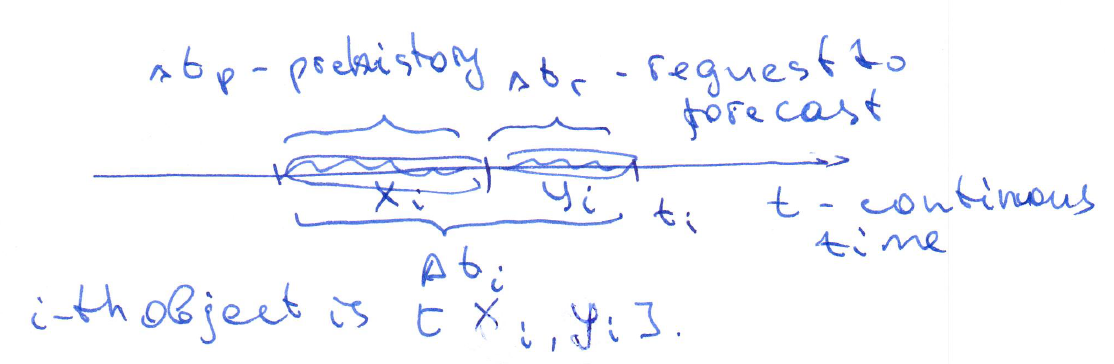 Δt_p - prehistory Δt_r - request to
forecast
x_i y_i t_i t - continous
time
Δt_i
i-th object is [x_i, y_i].